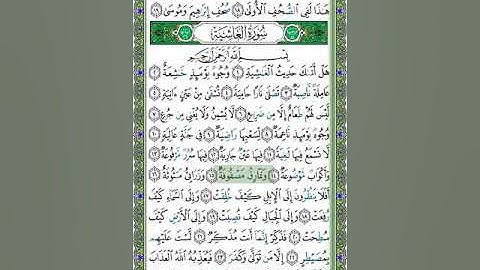 هَٰذَا لَفِي ٱلصُّحُفِ ٱلْأُولَىٰ ١٨ صُحُفِ إِبْرَٰهِيمَ وَمُوسَىٰ ١٩
سُورَةُ الْغَاشِيَةِ
بِسْمِ ٱللَّهِ ٱلرَّحْمَٰنِ ٱلرَّحِيمِ
هَلْ أَتَىٰكَ حَدِيثُ ٱلْغَٰشِيَةِ ١ وُجُوهٌ يَوْمَئِذٍ خَٰشِعَةٌ ٢
عَامِلَةٌ نَّاصِبَةٌ ٣ تَصْلَىٰ نَارًا حَامِيَةً ٤ تُسْقَىٰ مِنْ عَيْنٍ ءَانِيَةٍ ٥
لَّيْسَ لَهُمْ طَعَامٌ إِلَّا مِن ضَرِيعٍ ٦ لَّا يُسْمِنُ وَلَا يُغْنِي مِن جُوعٍ ٧
وُجُوهٌ يَوْمَئِذٍ نَّاعِمَةٌ ٨ لِّسَعْيِهَا رَاضِيَةٌ ٩ فِي جَنَّةٍ عَالِيَةٍ ١٠
لَّا تَسْمَعُ فِيهَا لَٰغِيَةً ١١ فِيهَا عَيْنٌ جَارِيَةٌ ١٢ فِيهَا سُرُرٌ مَّرْفُوعَةٌ ١٣
وَأَكْوَابٌ مَّوْضُوعَةٌ ١٤ وَنَمَارِقُ مَصْفُوفَةٌ ١٥ وَزَرَابِيُّ مَبْثُوثَةٌ ١٦
أَفَلَا يَنظُرُونَ إِلَى ٱلْإِبِلِ كَيْفَ خُلِقَتْ ١٧ وَإِلَى ٱلسَّمَآءِ كَيْفَ
رُفِعَتْ ١٨ وَإِلَى ٱلْجِبَالِ كَيْفَ نُصِبَتْ ١٩ وَإِلَى ٱلْأَرْضِ كَيْفَ
سُطِحَتْ ٢٠ فَذَكِّرْ إِنَّمَآ أَنتَ مُذَكِّرٌ ٢١ لَّسْتَ عَلَيْهِم
بِمُصَيْطِرٍ ٢٢ إِلَّا مَن تَوَلَّىٰ وَكَفَرَ ٢٣ فَيُعَذِّبُهُ ٱللَّهُ ٱلْعَذَابَ